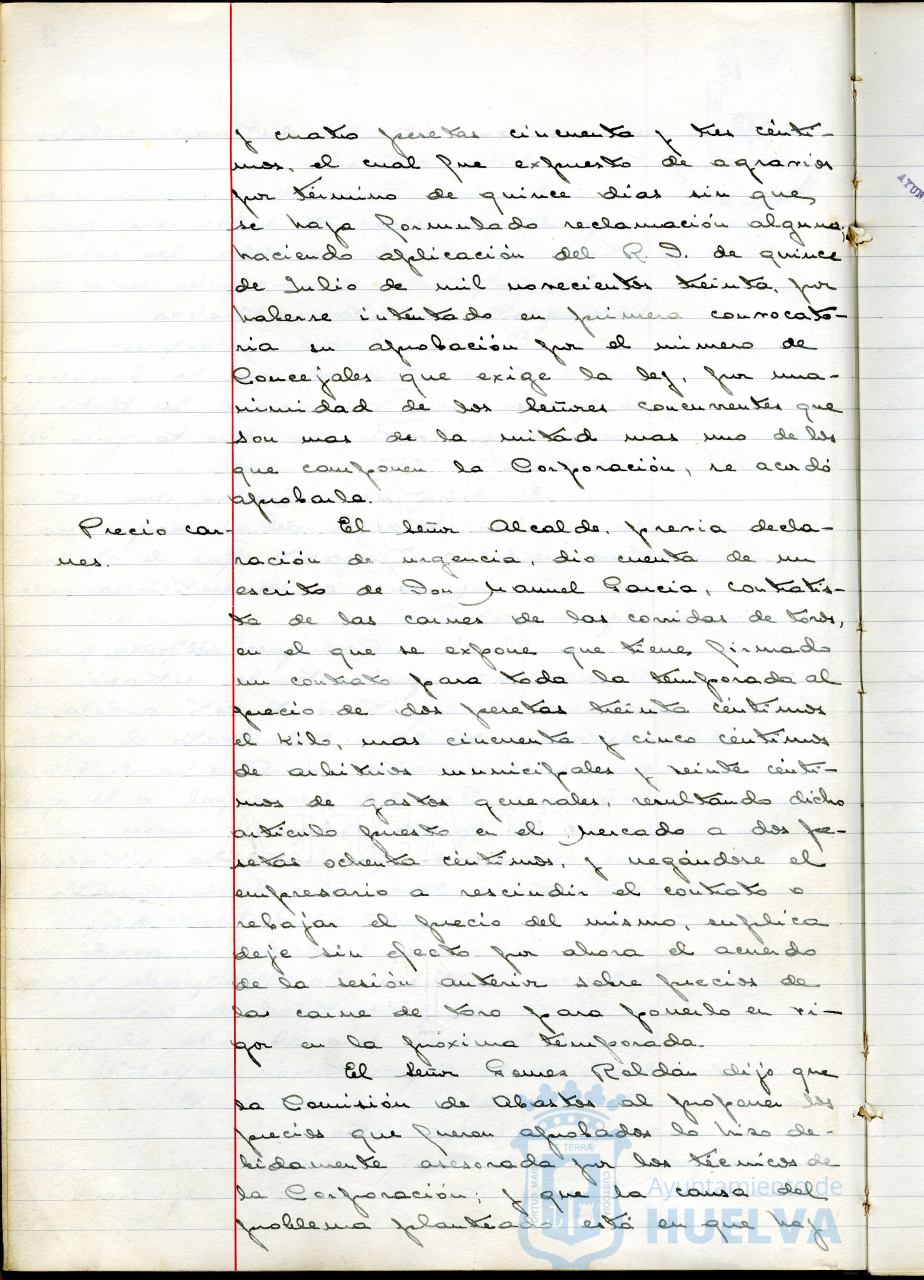 y cuatro pesetas cincuenta y tres cénti-
mos, el cual fue expuesto de agravios
por término de quince días sin que
se haya formulado reclamación alguna;
haciendo aplicación del R. D. de quince
de Julio de mil novecientos treinta, por
haberse intentado en primera convocato-
ria su aprobación por el número de
Concejales que exige la ley, por una-
nimidad de los Señores concurrentes que
son mas de la mitad mas uno de los
que componen la Corporación, se acordó
aprobarla.
Precio car-
nes.
El Señor Alcalde, previa decla-
ración de urgencia, dio cuenta de un
escrito de Don Manuel García, contratis-
ta de las carnes de las corridas de toros,
en el que se expone que tiene firmado
un contrato para toda la temporada al
precio de dos pesetas treinta céntimos
el kilo, mas cincuenta y cinco céntimos
de arbitrios municipales y veinte cénti-
mos de gastos generales, resultando dicho
artículo puesto en el mercado a dos pe-
setas ochenta céntimos, y negándose el
empresario a rescindir el contrato o
rebajar el precio del mismo, suplica
deje sin efecto por ahora el acuerdo
de la sesión anterior sobre precios de
la carne de toro para ponerlo en vi-
gor en la próxima temporada.
El Señor Gomez Roldán dijo que
la Comisión de Abastos al proponer los
precios que fueron aprobados lo hizo de-
bidamente asesorada por los técnicos de
la Corporación; y que la causa del
problema planteado está en que hay
AYUN
TERRÆ
PORTUS MARIS
CUSTODIA
Ayuntamiento de
HUELVA